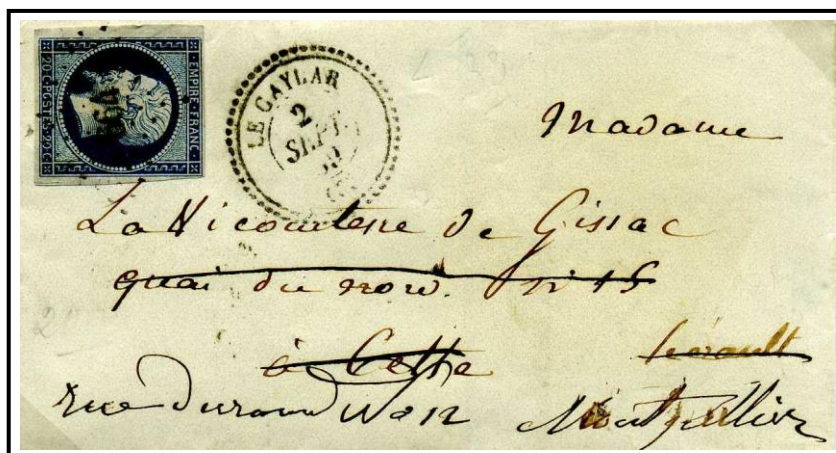 EMPIRE FRANC.
20.C.POSTES.20.C.
LE CAYLAR
2
SEPT.
59
Madame
La Vicomtesse de Gissac
quai du nord. n° 15
à Cette hérault
rue Durand N° 12 Montpellier